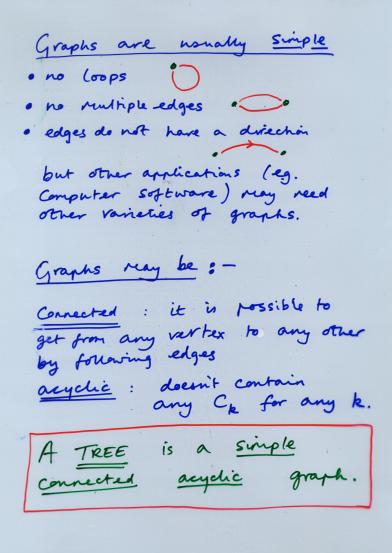 Graphs are usually simple
• no loops
• no multiple edges
• edges do not have a direction
but other applications (eg.
Computer Software) may need
other varieties of graphs.
Graphs may be :-
Connected : it is possible to
get from any vertex to any other
by following edges
acyclic : doesn't contain
any Ck for any k.
A TREE is a simple
connected acyclic graph.